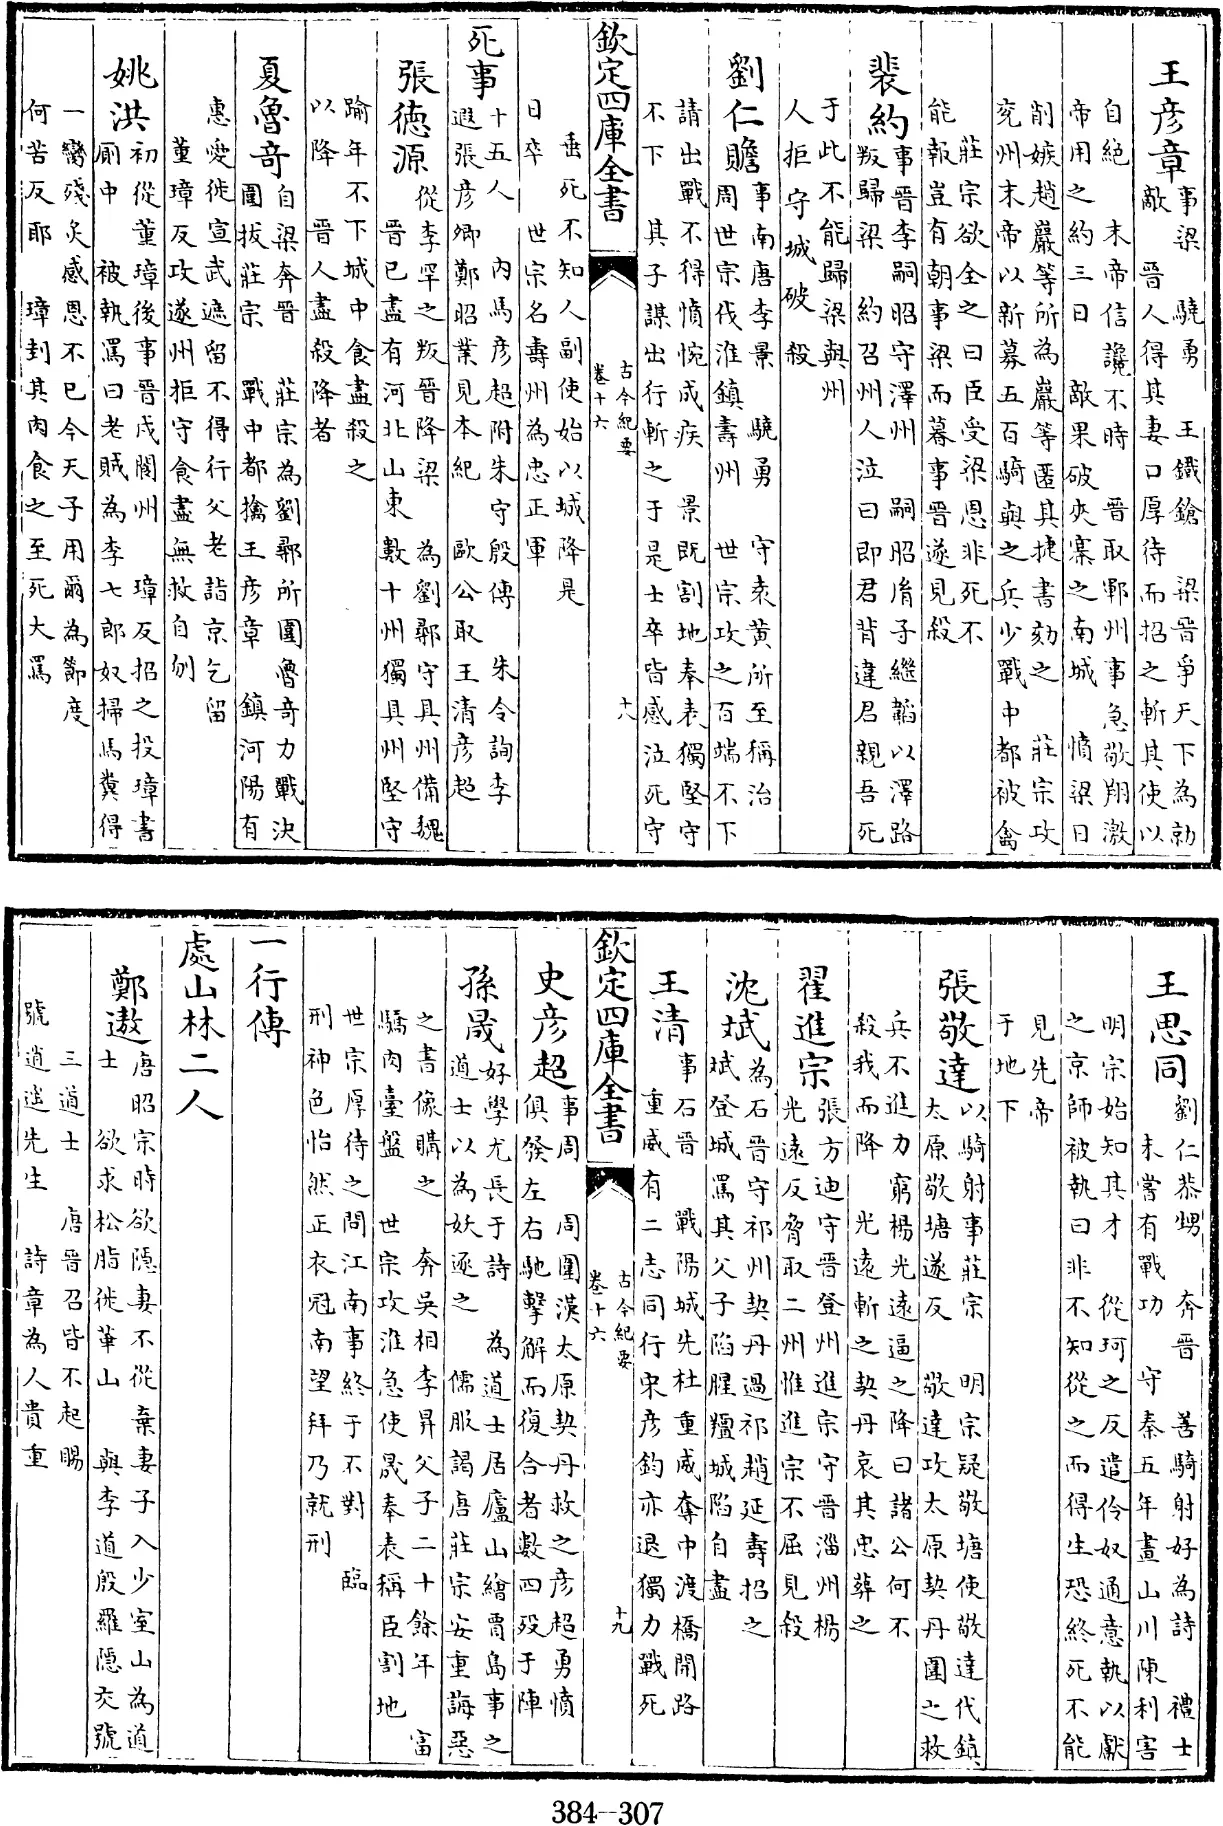 王彦章事梁 驍勇 王鐵鎗 梁晋爭天下為勍
敵 晋人得其妻口厚待而招之斬其使以
自絶 末帝信讒不時 晋取鄆州事急敬翔激
帝用之約三日 敵果破夾寨之南城 憤梁日
削嫉趙巖等所為巖等匿其捷書劾之 莊宗攻
兖州末帝以新募五百騎與之兵少戰中都被禽
莊宗欲全之曰臣受梁恩非死不
能報豈有朝事梁而暮事晋遂見殺
裴約事晋李嗣昭守澤州 嗣昭子繼韜以澤路
叛歸梁 約召州人泣曰即君背違君親吾死
于此不能歸梁與州
人拒守城破 殺
劉仁贍事南唐李景 驍勇 守袁黄所至稱治
周世宗伐淮鎮壽州 世宗攻之百端不下
請出戰不得憤惋成疾 景既割地奉表獨堅守
不下 其子謀出行斬之于是士卒皆感泣死守
欽定四庫全書
古今紀要
卷十六
十八
垂死不知人副使始以城降是
日卒 世宗名壽州為忠正軍
死事十五人 内馬彦超附朱守殷傳 朱令詢李
遐張彦卿鄭昭業見本紀 歐公取王清彦超
張徳源從李罕之叛晋降梁 為劉鄩守具州備魏
晋已盡有河北山東數十州獨具州堅守
踰年不下城中食盡殺之
以降 晋人盡殺降者
夏魯奇自梁奔晋 莊宗為劉鄩所圍魯奇力戰決
圍拔莊宗 戰中都擒王彦章 鎮河陽有
惠愛徙宣武遮留不得行父老詣京乞留
董璋反攻遂州拒守食盡無救自刎
姚洪初從董璋後事晋戍閬州 璋反招之投璋書
厠中 被執罵曰老賊為李七郎奴掃馬糞得
一臠殘炙感恩不已今天子用爾為節度
何苦反耶 璋刲其肉食之至死大罵
王思同劉仁恭甥 奔晋 善騎射好為詩 禮士
未嘗有戰功 守秦五年畫山川陳利害
明宗始知其才 從珂之反遣伶奴通意執以獻
之京師被執曰非不知從之而得生恐終死不能
見先帝
于地下
張敬達以騎射事莊宗 明宗疑敬塘使敬達代鎮
太原敬塘遂反 敬達攻太原契丹圍之救
兵不進力窮楊光遠逼之降曰諸公何不
殺我而降 光遠斬之契丹哀其忠葬之
翟進宗張方迪守晋登州進宗守晋淄州楊
光遠反脅取二州惟進宗不屈見殺
沈斌為石晋守祁州契丹過祁趙延壽招之
斌登城罵其父子陷腥羶城陷自盡
王清事石晋 戰陽城先杜重威奪中渡橋開路
重威有二志同行宋彦鈞亦退獨力戰死
欽定四庫全書
古今紀要
卷十六
十九
史彦超事周 周圍漢太原契丹救之彦超勇憤
俱發左右馳擊解而復合者數四歿于陣
孫晟好學尤長于詩 為道士居廬山繪賈島事之
道士以為妖逐之 儒服謁唐莊宗安重誨惡
之書像購之 奔吴相李昪父子二十餘年 富
驕肉臺盤 世宗攻淮急使晟奉表稱臣割地
世宗厚待之問江南事終于不對 臨
刑神色怡然正衣冠南望拜乃就刑
一行傳
處山林二人
鄭遨唐昭宗時欲隱妻不從棄妻子入少室山為道
士 欲求松脂徙華山 與李道殷羅隱交號
三道士 唐晋召皆不起賜
號逍遥先生 詩章為人貴重
384--307